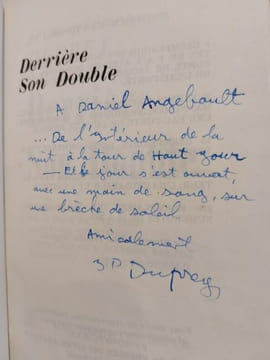 Derrière
Son Double
A Daniel Angebault
... De l'intérieur de la
nuit à la tour de Haut jour
— Et le jour s'est ouvert,
avec une main de sang, sur
une brèche de soleil
Amicalement
JP Duprey